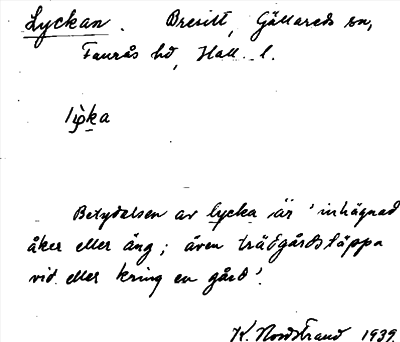 Lyckan. Bresilt, Gällareds sn,
Faurås hd, Hall. l.
Betydelsen av lycka är 'inhägnad
åker eller äng; även trädgårdstäppa
vid eller kring en gård'.
K. Nordstrand 1939.